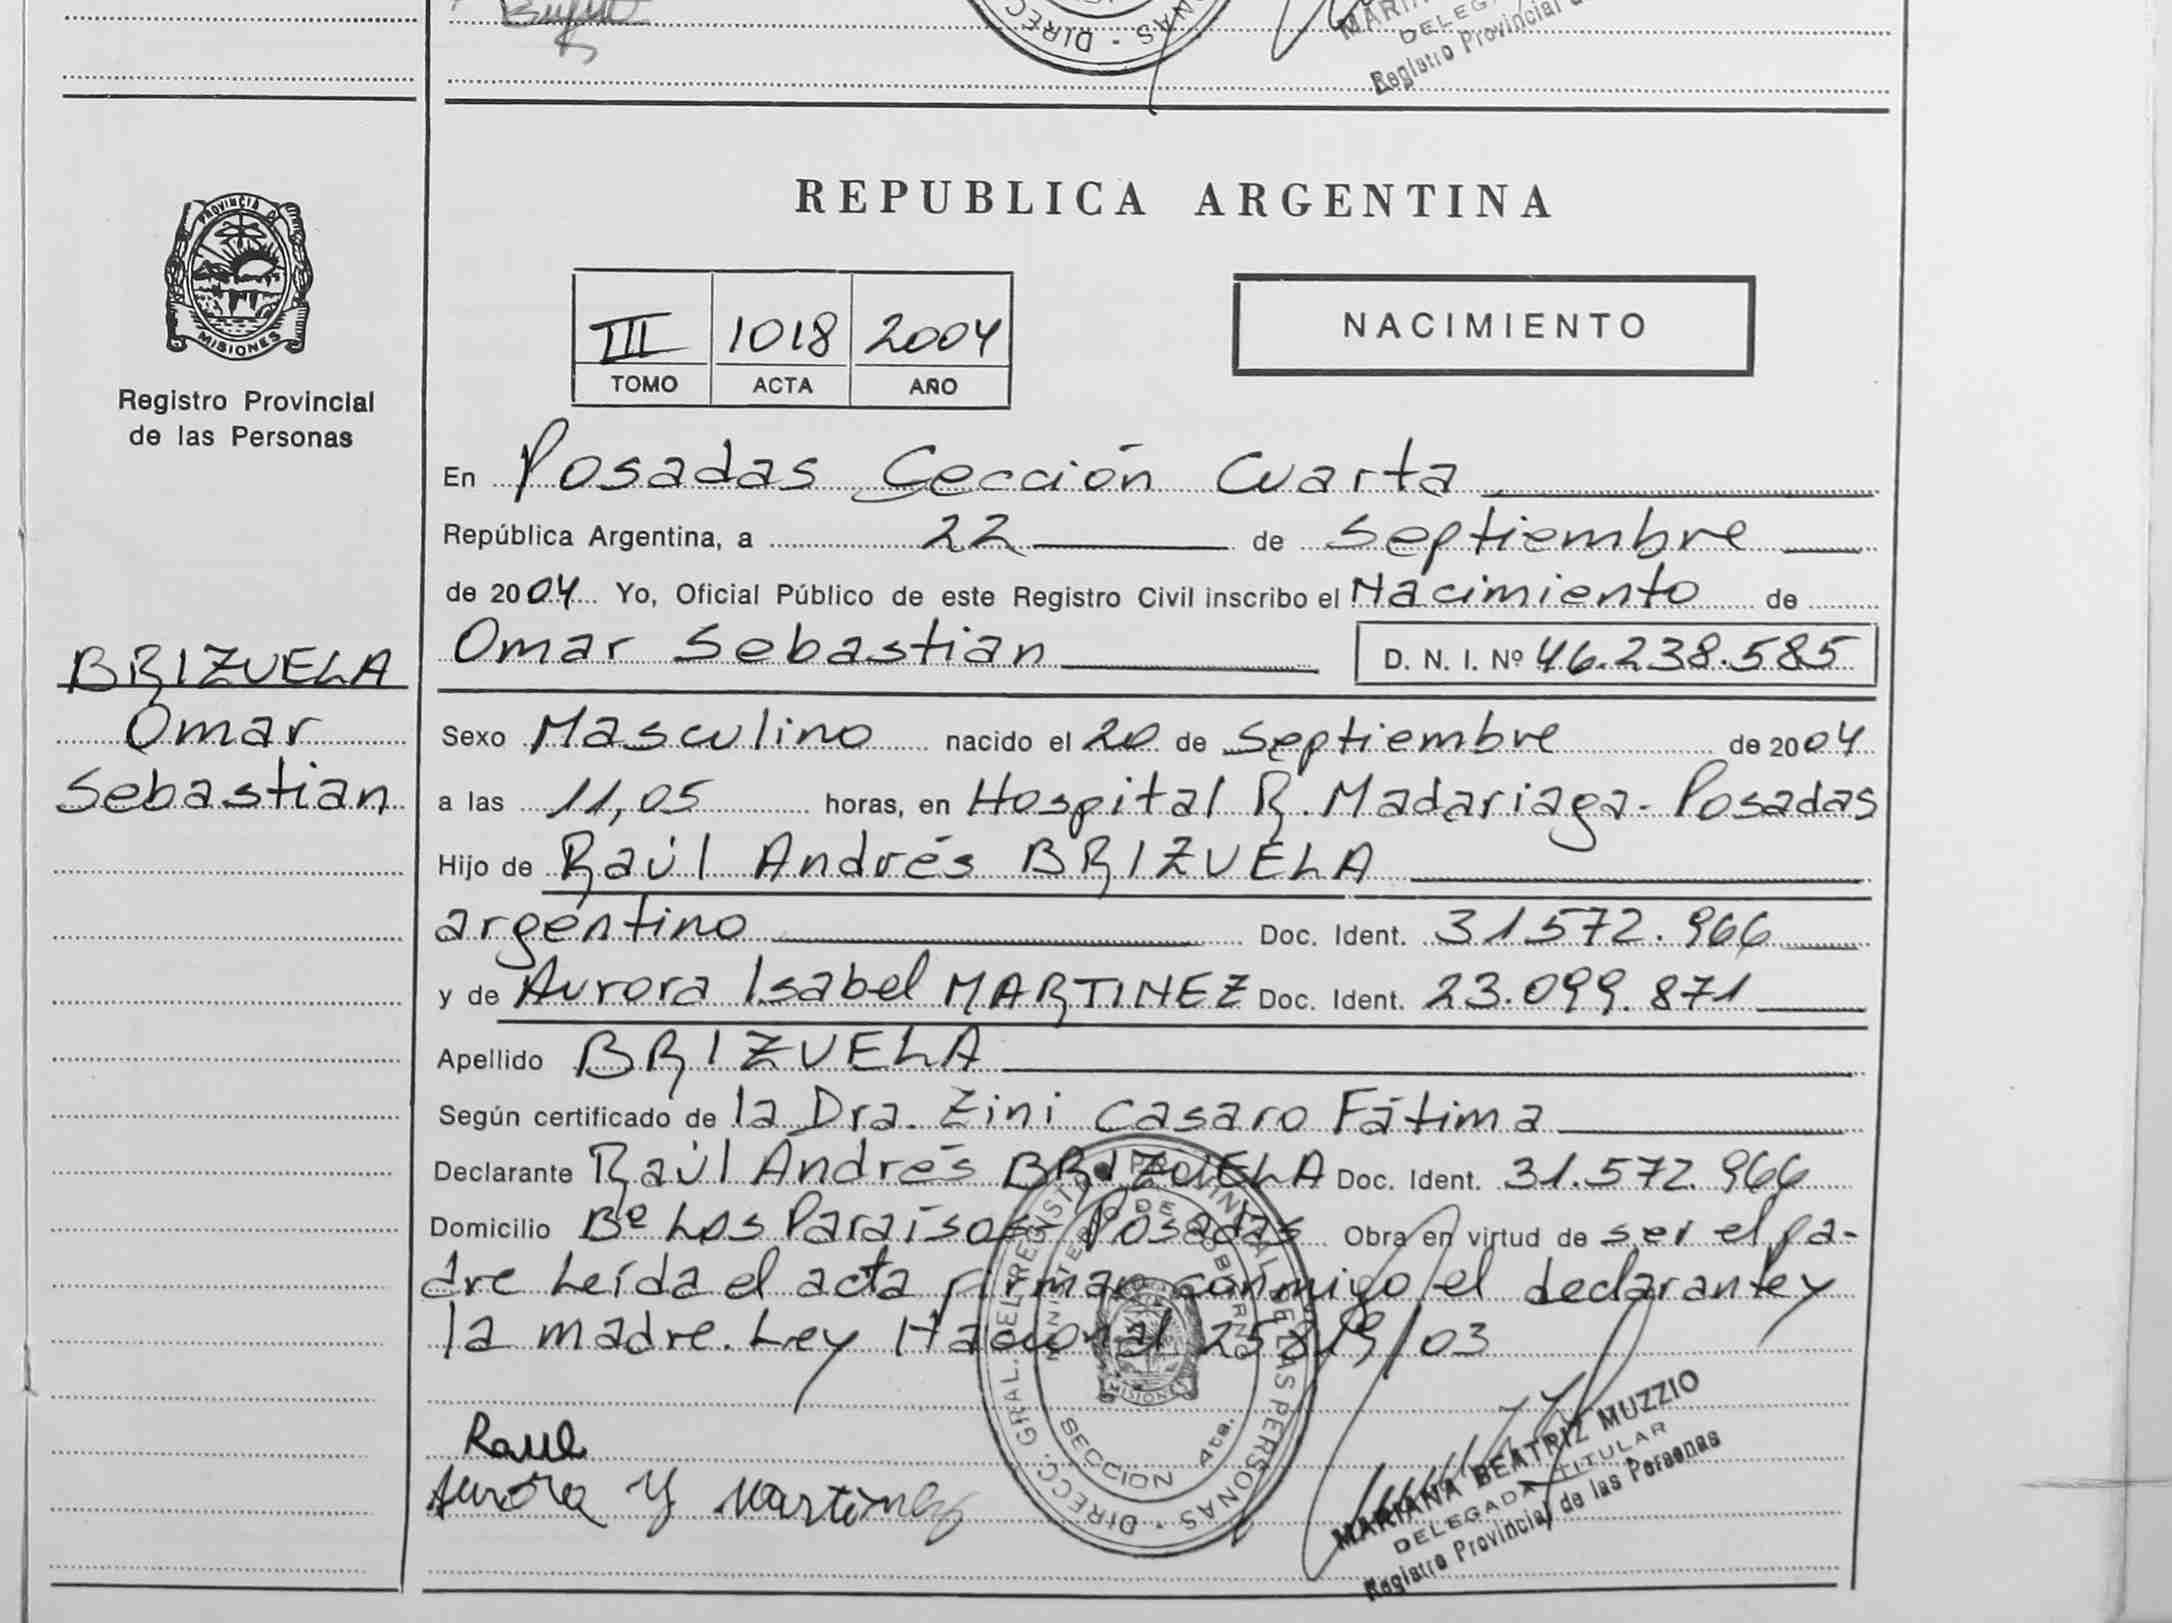 DIRECC
NAS
DELEG
Registro Provincial
PROVINCIA DE
MISIONES
Registro Provincial
de las Personas
BRIZUELA
Omar
Sebastian
REPUBLICA ARGENTINA
III 1018 2004
TOMO ACTA AÑO
NACIMIENTO
En Posadas Cección Cuarta
República Argentina, a 22 de septiembre
de 2004 Yo, Oficial Público de este Registro Civil inscribo el Nacimiento de
Omar Sebastian D. N. I. Nº 46.238.585
Sexo Masculino nacido el 20 de septiembre de 2004
a las 11,05 horas, en Hospital R. Madariaga - Posadas
Hijo de Raúl Andrés BRIZUELA
argentino Doc. Ident. 31.572.966
y de Aurora Isabel MARTINEZ Doc. Ident. 23.099.871
Apellido BRIZUELA
Según certificado de la Dra. Zini Casaro Fátima
Declarante Raúl Andrés BRIZUELA Doc. Ident. 31.572.966
Domicilio Bº Los Paraísos - Posadas Obra en virtud de ser el pa-
dre Leída el acta firman conmigo el declarante y
la madre. Ley Nacional 25819/03
Raul
Aurora Y Martinez
DIRECC. GRAL. DEL REGISTRO PROVINCIAL DE LAS PERSONAS
MINISTERIO DE GOBIERNO
MISIONES
SECCION 4ta.
MARIANA BEATRIZ MUZZIO
DELEGADA TITULAR
Registro Provincial de las Personas